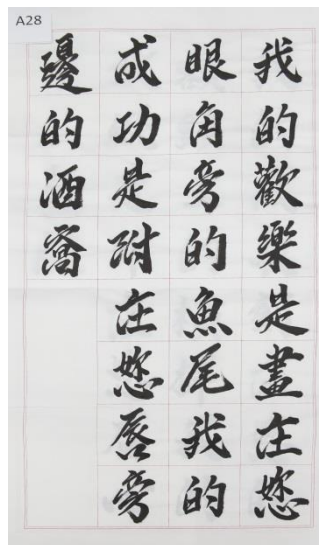 A28
我的歡樂是畫在您
眼角旁的魚尾我的
成功是附在您唇旁
邊的酒窩